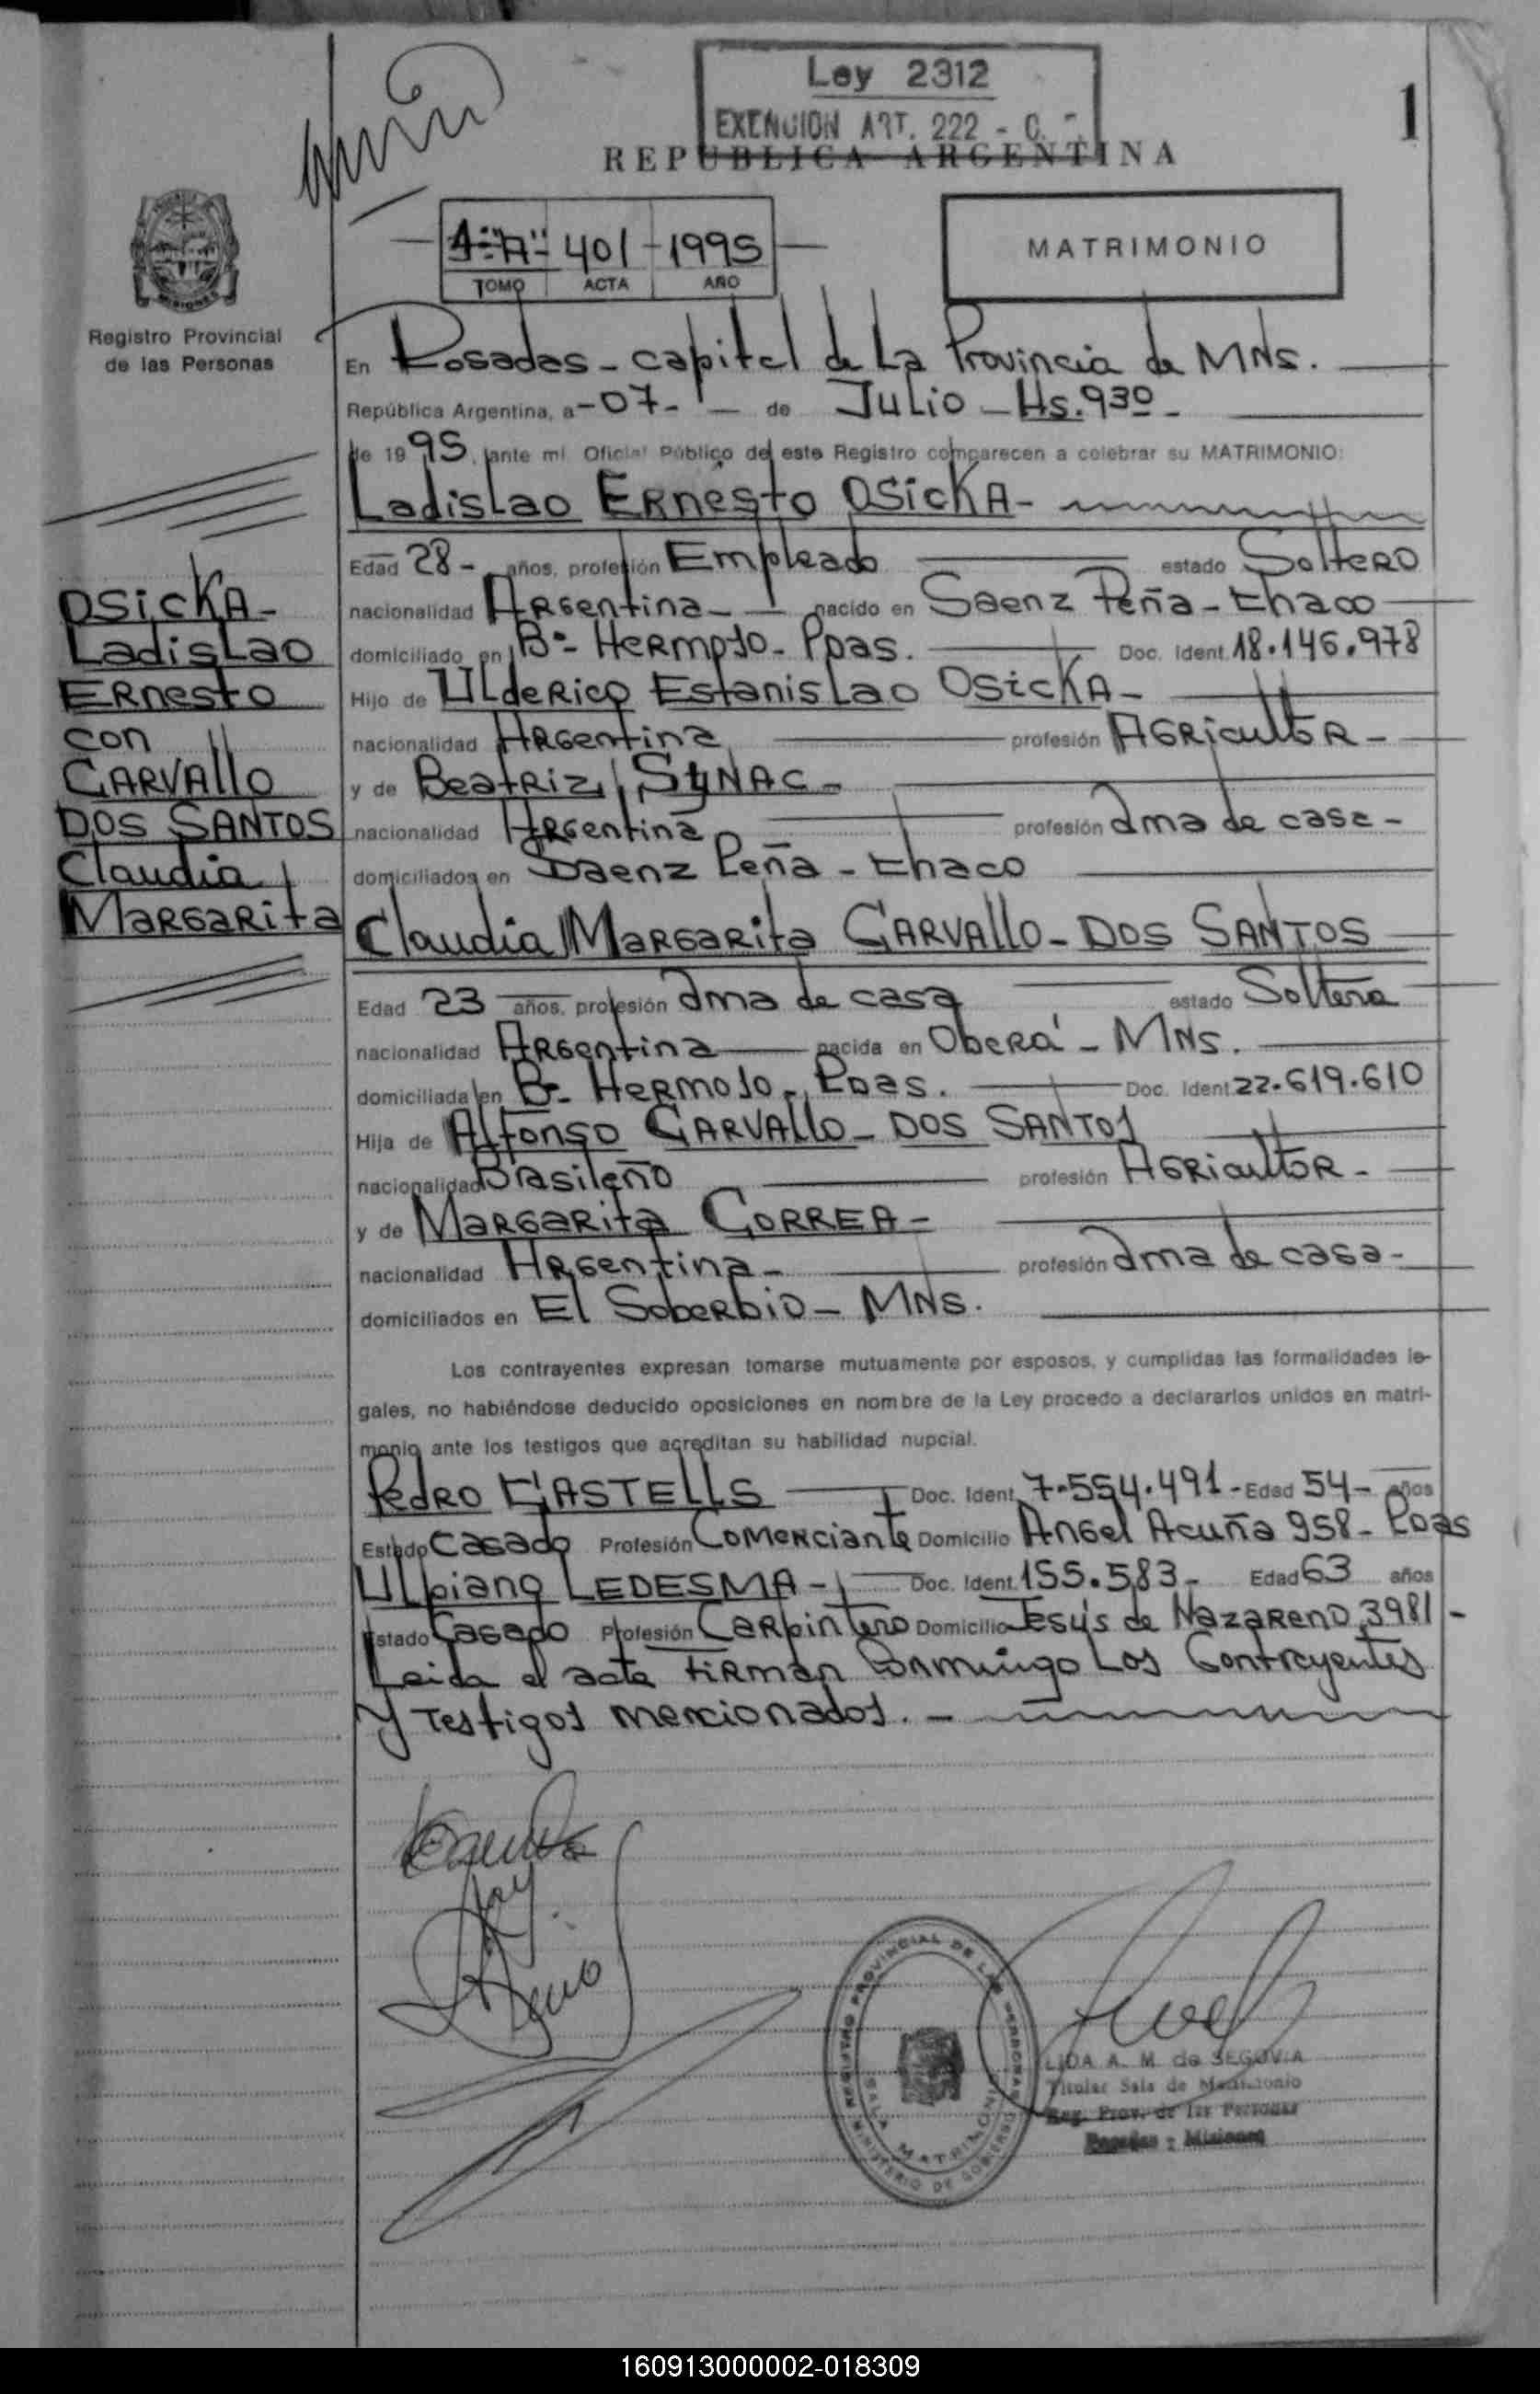 Ley 2312
EXENCION ART. 222 - C.
1
REPUBLICA ARGENTINA
1-"A"- 401 - 1995
TOMO ACTA AÑO
MATRIMONIO
MISIONES
Registro Provincial
de las Personas
En Posadas - capital de La Provincia de MNS.
República Argentina, a - 07 - de Julio - Hs. 930 -
de 19 95, ante mi Oficial Público de este Registro comparecen a celebrar su MATRIMONIO:
Ladislao Ernesto OSICKA -
Edad 28 - años, profesión Empleado estado Soltero
nacionalidad Argentina - nacido en Saenz Peña - Chaco
domiciliado en Bº Hermoso - Pdas. Doc. Ident. 18.146.978
Hijo de Ulderico Estanislao OSICKA -
nacionalidad Argentina profesión Agricultor -
y de Beatriz SYNAC -
nacionalidad Argentina profesión ama de casa -
domiciliados en Saenz Peña - Chaco
OSICKA -
Ladislao
Ernesto
con
CARVALLO
DOS SANTOS
Claudia
Margarita
Claudia Margarita CARVALLO - DOS SANTOS
Edad 23 años, profesión ama de casa estado Soltera
nacionalidad Argentina nacida en Oberá - MNS.
domiciliada en Bº Hermoso - Pdas. Doc. Ident. 22.619.610
Hija de Alfonso CARVALLO - DOS SANTOS
nacionalidad Brasileño profesión Agricultor -
y de Margarita CORREA -
nacionalidad Argentina - profesión ama de casa -
domiciliados en El Soberbio - MNS.
Los contrayentes expresan tomarse mutuamente por esposos, y cumplidas las formalidades le-
gales, no habiéndose deducido oposiciones en nombre de la Ley procedo a declararlos unidos en matri-
monio ante los testigos que acreditan su habilidad nupcial.
Pedro CASTELLS Doc. Ident. 7.554.491 - Edad 54 - años
Estado Casado Profesión Comerciante Domicilio Angel Acuña 958 - Pdas
Ulpiano LEDESMA - Doc. Ident. 155.583 - Edad 63 años
Estado Casado Profesión Carpintero Domicilio Jesús de Nazareno 3981 -
Leida el acta Firman Conmigo Los Contrayentes
y Testigos mencionados. -
REGISTRO PROVINCIAL DE LAS PERSONAS
SALA MATRIMONIO
MINISTERIO DE GOBIERNO
LIDA A. M. de SEGOVIA
Titular Sala de Matrimonio
Reg. Prov. de las Personas
Posadas - Misiones
160913000002-018309